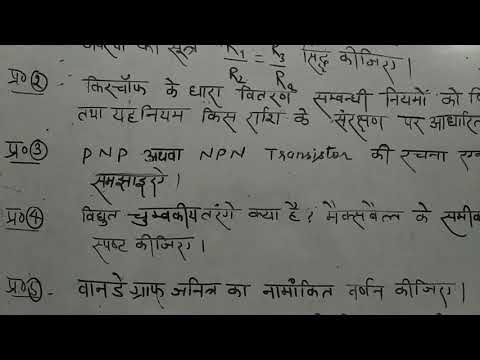 का सूत्र R1/R2 = R3/R4 सिद्ध कीजिए।
प्र० ② किरचॉफ के धारा वितरण सम्बन्धी नियमों को
तथा यह नियम किस राशि के संरक्षण पर आधारित
प्र० ③ PNP अथवा NPN Transistor की रचना
समझाइए।
प्र० ④ विद्युत चुम्बकीय तरंगे क्या है? मैक्सवैल के
स्पष्ट कीजिए।
प्र० ⑤ - वानडे ग्राफ जनित्र का नामांकित वर्णन कीजिए।